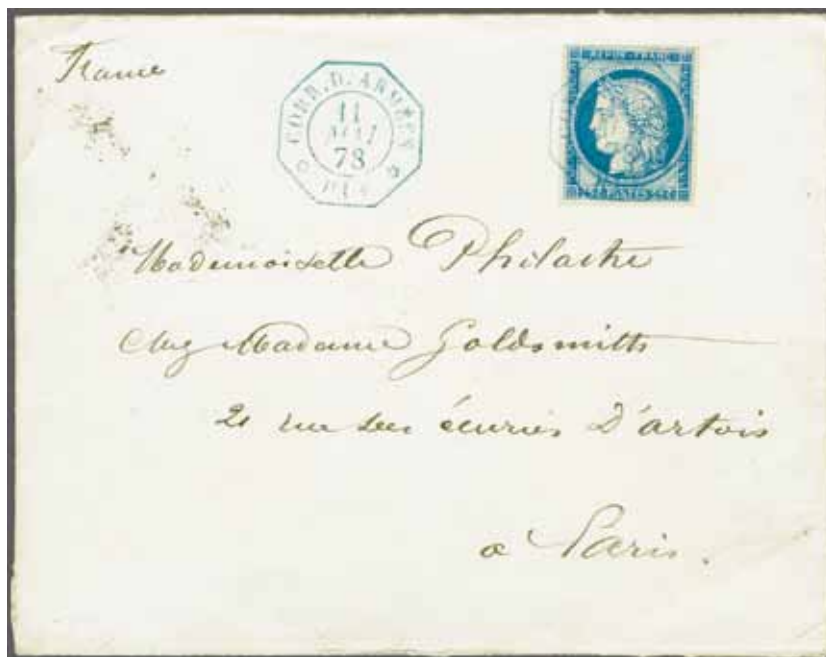 France
CORR. D. ARMÉES
11
MAI
78
REPUB. FRANC.
Mademoiselle Philastre
chez Madame Goldsmith
21 rue des écuries D'artois
a Paris.